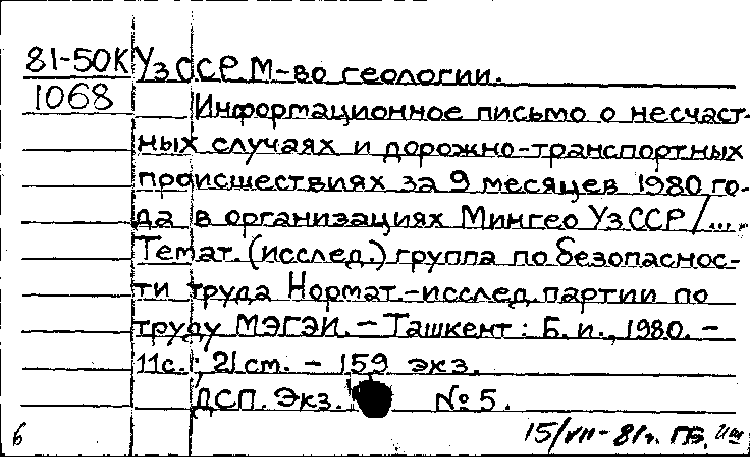 81-50К УзССР. М-во геологии.
1068
Информационное письмо о несчаст-
ных случаях и дорожно-транспортных
происшествиях за 9 месяцев 1980 го-
да в организациях Мингео УзССР/...
Темат. (исслед.) группа по безопаснос-
ти труда Нормат.-исслед. партии по
труду МЭГЭИ. – Ташкент : Б. и., 1980. –
11с. ; 21 см. – 159 экз.
ДСП. Экз. № 5.
6 15/VII-81г. ГБ,